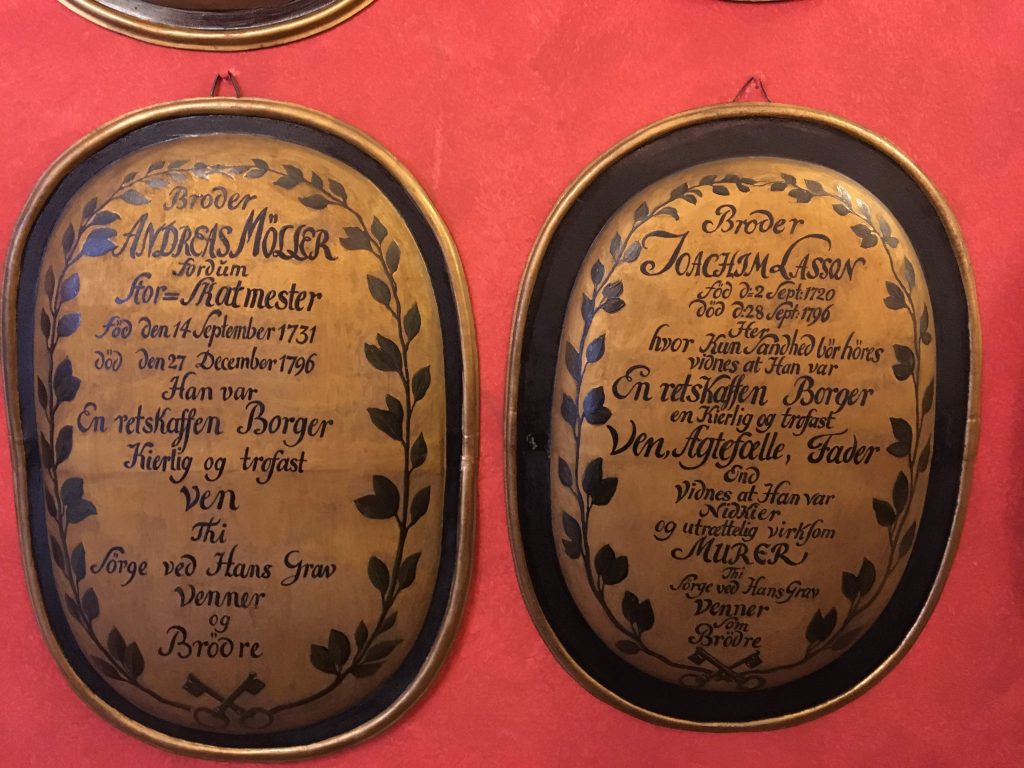 Broder
ANDREAS MÖLLER
fordum
Stor=Skatmester
föd den 14 September 1731
död den 27 December 1796
Han var
En retskaffen Borger
Kierlig og trofast
Ven
Thi
Sörge ved Hans Grav
Venner
og
Brödre
Broder
JOACHIM LASSON
föd d: 2 Sept: 1720
död d: 28 Sept: 1796
Her
hvor Kun Sandhed bör höres
vidnes at Han var
En retskaffen Borger
en Kierlig og trofast
Ven, Agtefœlle, Fader
End
Vidnes at Han var
Nidkier
og utrættelig virksom
MURER
Thi
Sörge ved Hans Grav
Venner
som
Brödre